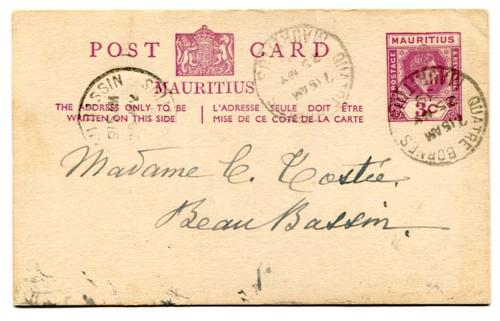 POST CARD
MAURITIUS
THE ADDRESS ONLY TO BE WRITTEN ON THIS SIDE
L'ADRESSE SEULE DOIT ÊTRE MISE DE CE CÔTÉ DE LA CARTE
MAURITIUS
POSTAGE
& REVENUE
3c
QUATRE BORNES
MAURITIUS
7.15 AM
QUATRE
MAURITIUS
BASSIN
Madame C. Hostée.
Beau Bassin.